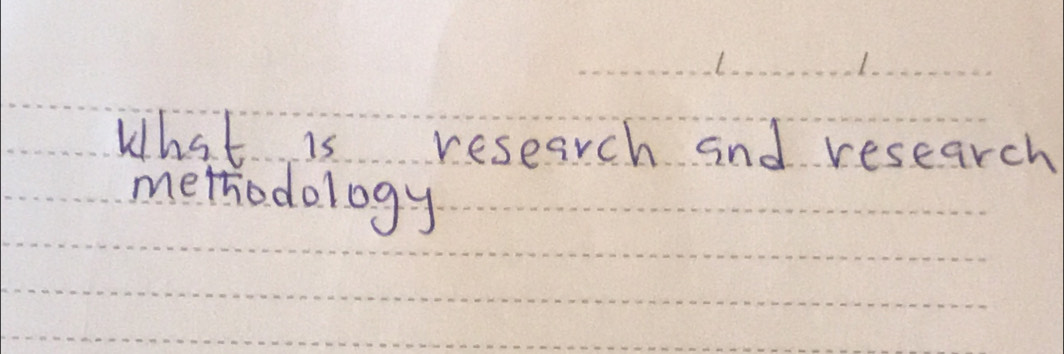 What is research and research
methodology